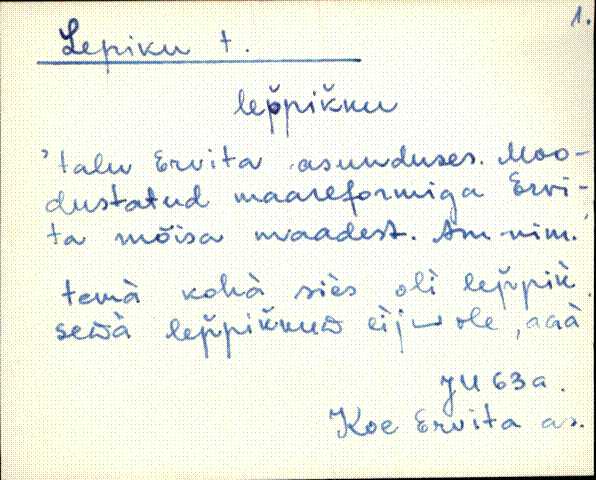 1.
Lepiku t.
lep̆pik̆ku
'talu Ervita asunduses. Moo-
dustatud maareformiga Ervi-
ta mõisa maadest. Am-nim.'
temà kohà siès oli lep̆pik̆
sewà lep̆pik̆kuw èij ole, aaà
JU 63 a.
Koe Ervita as.